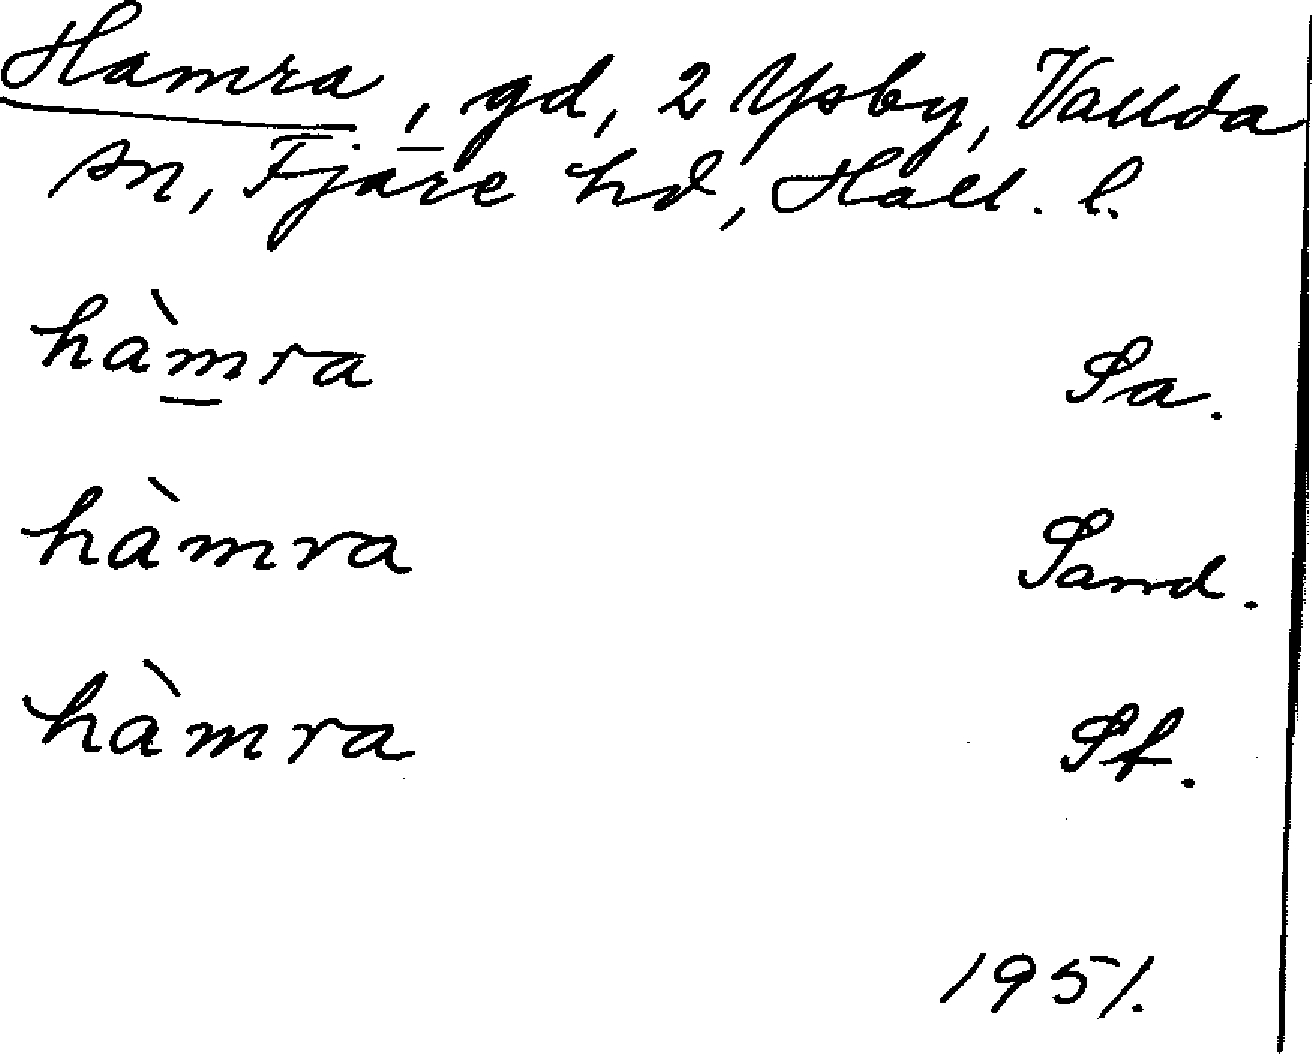 Hamra, gd, 2 Ysby, Vallda
sn, Fjäre hd, Hall. l.
hàmra Sa.
hàmra Sand.
hàmra Sf.
1951.